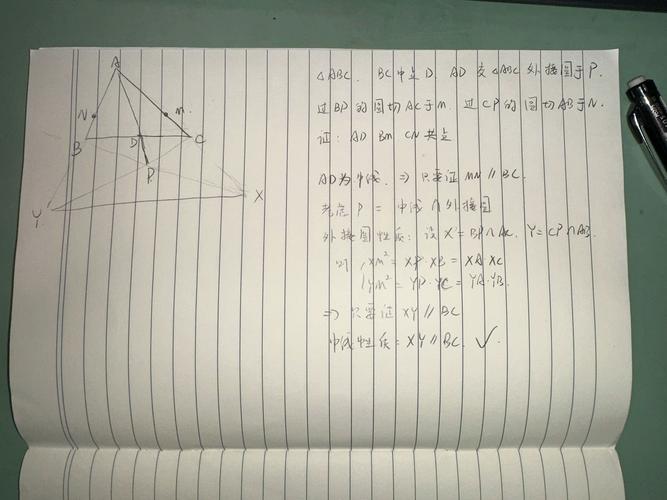 △ABC. BC中点D. AD交△ABC外接圆于P.
过BP的圆切AC于M. 过CP的圆切AB于N.
证: AD BM CN共点
AD为中线. ⇒ 只要证 MN // BC.
考虑 P = 中线 ∩ 外接圆
外接圆性质: 设 X = BP∩AC. Y = CP∩AB.
则 { XM² = XP·XB = XA·XC
YN² = YP·YC = YA·YB.
⇒ 只要证 XY // BC
中线性质 = XY // BC. ✓.
A
N
M
B
D
C
P
X
Y